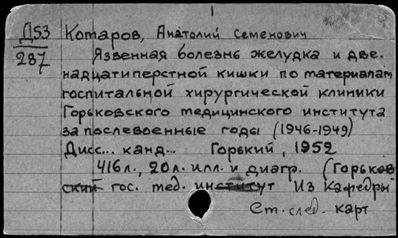 1
Д53
287
Котаров, Анатолий Семенович
Язвенная болезнь желудка и две.
надцатиперстной кишки по материалам
госпитальной хирургической клиники
Горьковского медицинского института
за послевоенные годы (1946-1949)
Дисс... канд... Горький, 1952
416л., 20л. илл. и диагр. (Горьков
ский гос. мед. институт Из Кафедры
См. след. карт